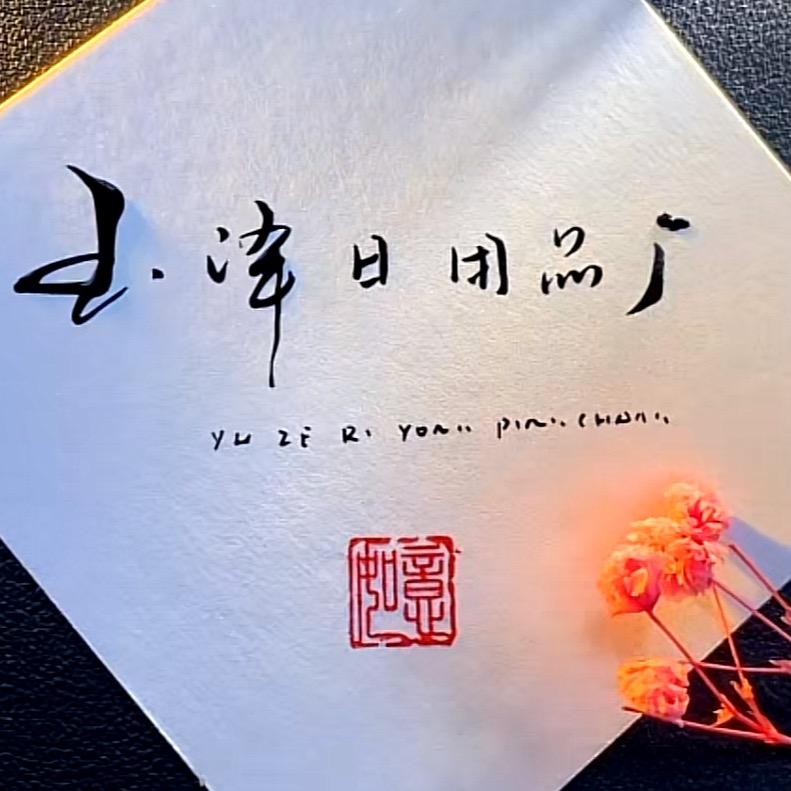 玉泽日用品厂
YU ZE RI YONG PIN CHANG
如意